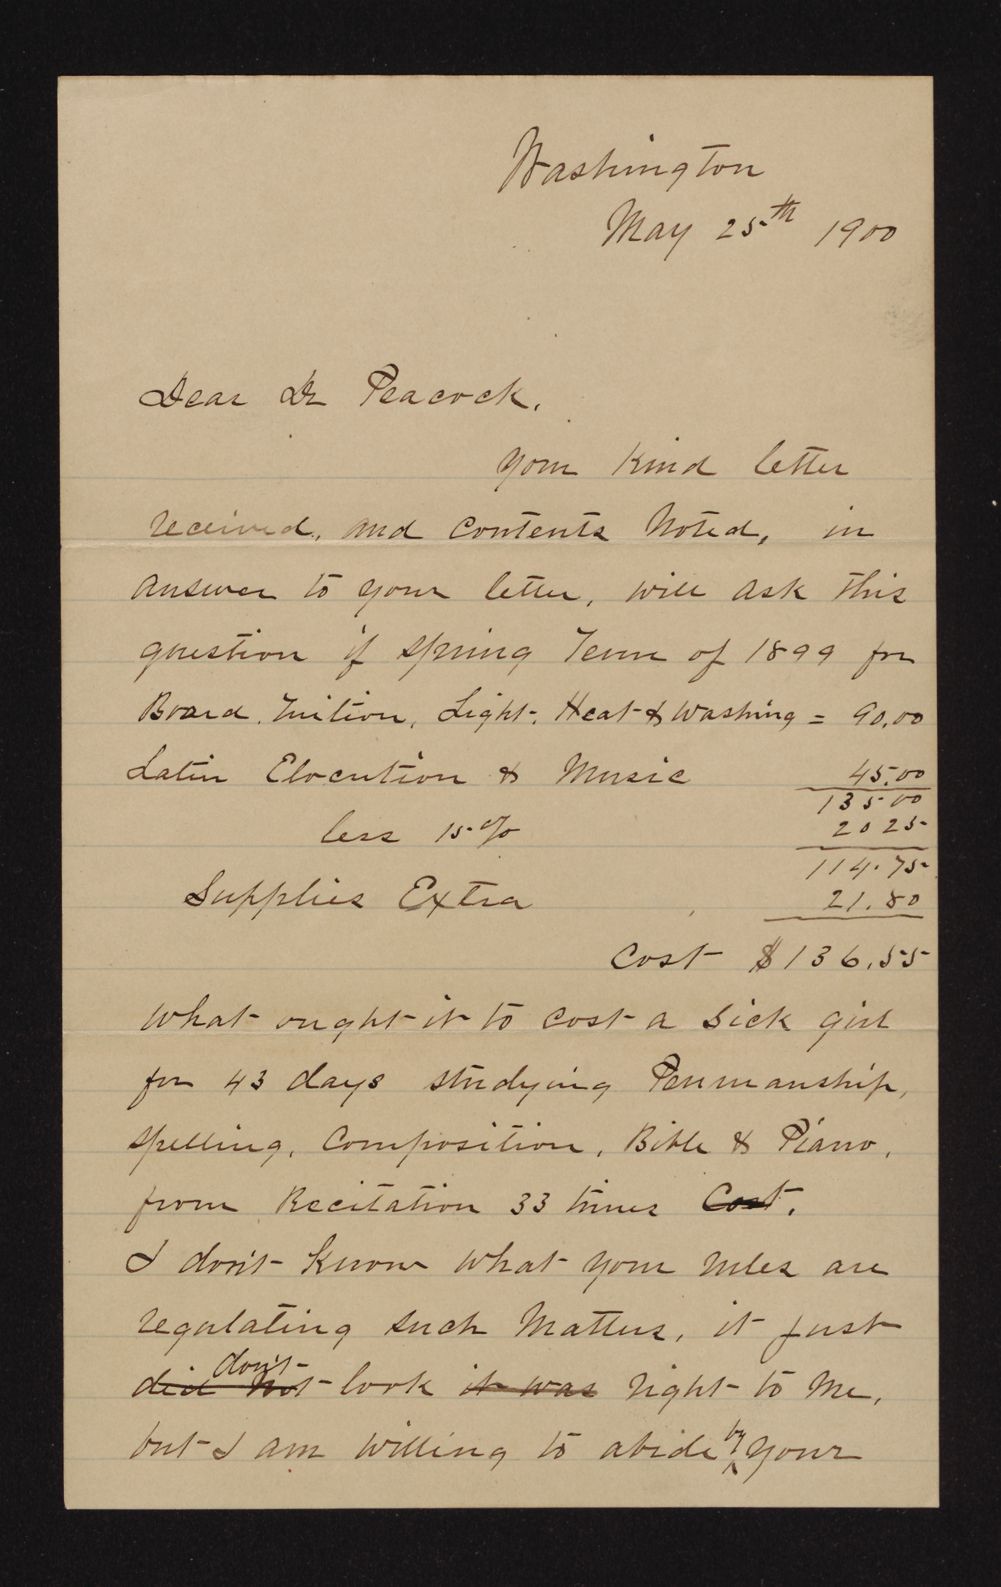 Washington
May 25th 1900
Dear Dr Peacock.
Your kind letter
received, and contents noted, in
answer to your letter, will ask this
question if Spring Term of 1899 for
Board. Tuition, Light, Heat & Washing = 90.00
Latin Elocution & Music 45.00
135 00
less 15% 20 25
114.75
Supplies Extra 21.80
Cost $136.55
What ought it to cost a sick girl
for 43 days studying Penmanship,
Spelling, Composition, Bible & Piano,
from Recitation 33 times Cost.
I don't know what your rules are
regulating such matters, it just
don't
did not look it was right to me,
but I am willing to abide by your